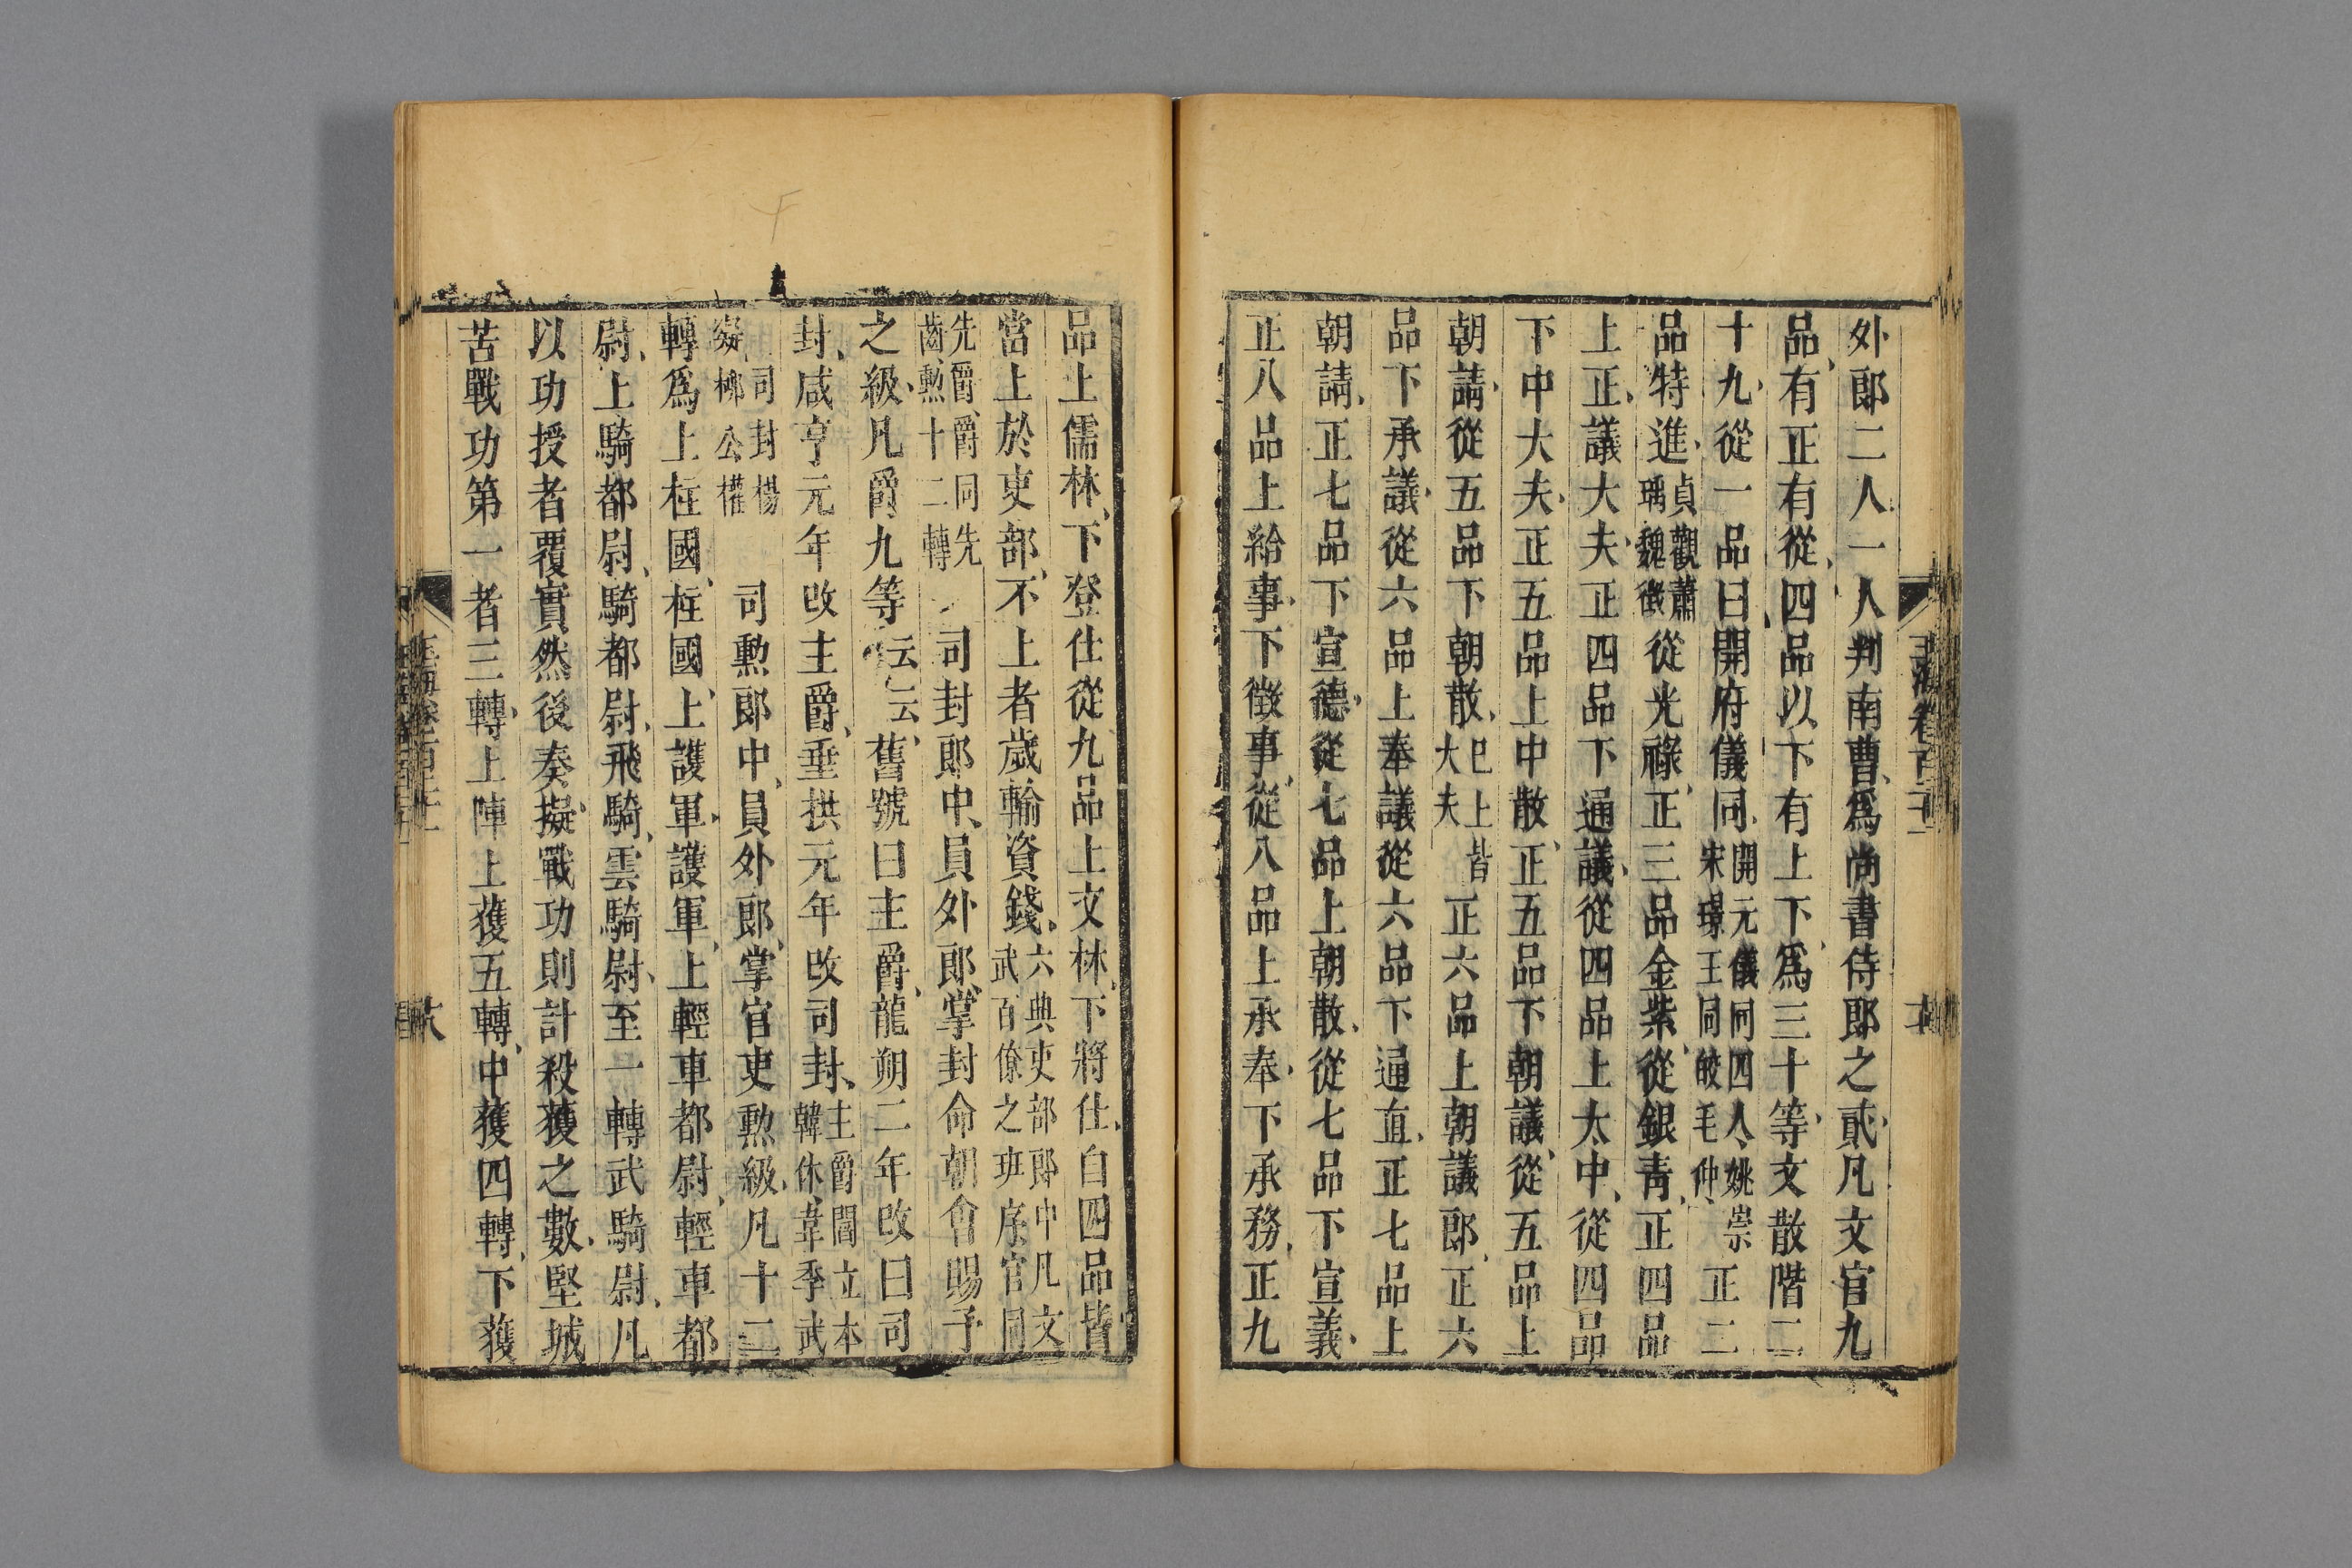 外郎二人一人判南曹爲尚書侍郎之貳凡文官九
品有正有從四品以下有上下爲三十等文散階二
十九從一品曰開府儀同開元儀同四人姚崇宋璟王同皎毛仲正二
品特進貞觀蕭瑀魏徵從光祿正三品金紫從銀青正四品
上正議大夫正四品下通議從四品上太中從四品
下中大夫正五品上中散正五品下朝議從五品上
朝請從五品下朝散巳上皆大夫正六品上朝議郎正六
品下承議從六品上奉議從六品下通直正七品上
朝請正七品下宣德從七品上朝散從七品下宣義
正八品上給事下徵事從八品上承奉下承務正九
品上儒林下登仕從九品上文林下將仕自四品皆
當上於吏部不上者歲輸資錢六典吏部郎中凡文武百僚之班序官同
先爵爵同先齒勲十二轉司封郎中員外郎掌封命朝會賜予
之級凡爵九等云云舊號曰主爵龍朔二年改曰司
封咸亨元年改主爵垂拱元年改司封主爵閻立本韓休韋季武
司封楊公權司勲郎中員外郎掌官吏勲級凡十二
轉爲上柱國柱國上護軍護軍上輕車都尉輕車都
尉上騎都尉騎都尉飛騎雲騎尉至一轉武騎尉凡
以功授者覆實然後奏擬戰功則計殺獲之數堅城
苦戰功第一者三轉上陣上獲五轉中獲四轉下獲